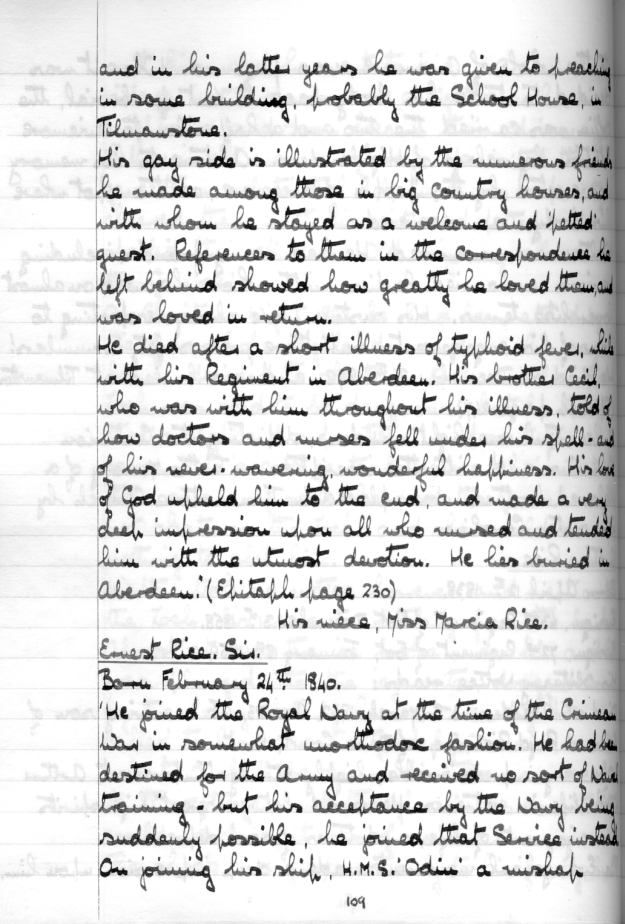 and in his latter years he was given to preaching
in some building, probably the School House, in
Tilmanstone.
His gay side is illustrated by the numerous friends
he made among those in big country houses, and
with whom he stayed as a welcome and 'petted'
guest. References to them in the correspondence he
left behind showed how greatly he loved them, and
was loved in return.
He died after a short illness of typhoid fever, while
with his Regiment in Aberdeen. His brother Cecil,
who was with him throughout his illness, told of
how doctors and nurses fell under his spell - and
of his never-wavering, wonderful happiness. His love
of God upheld him to the end, and made a very
deep impression upon all who nursed and tended
him with the utmost devotion. He lies buried in
Aberdeen.' (Epitaph page 230)
His niece, Miss Marcia Rice.
Ernest Rice. Sir.
Born February 24th 1840.
'He joined the Royal Navy at the time of the Crimean
War in somewhat unorthodox fashion. He had been
destined for the Army and received no sort of Naval
training - but his acceptance by the Navy being
suddenly possible, he joined that Service instead
On joining his ship, H.M.S. 'Odin' a mishap
109